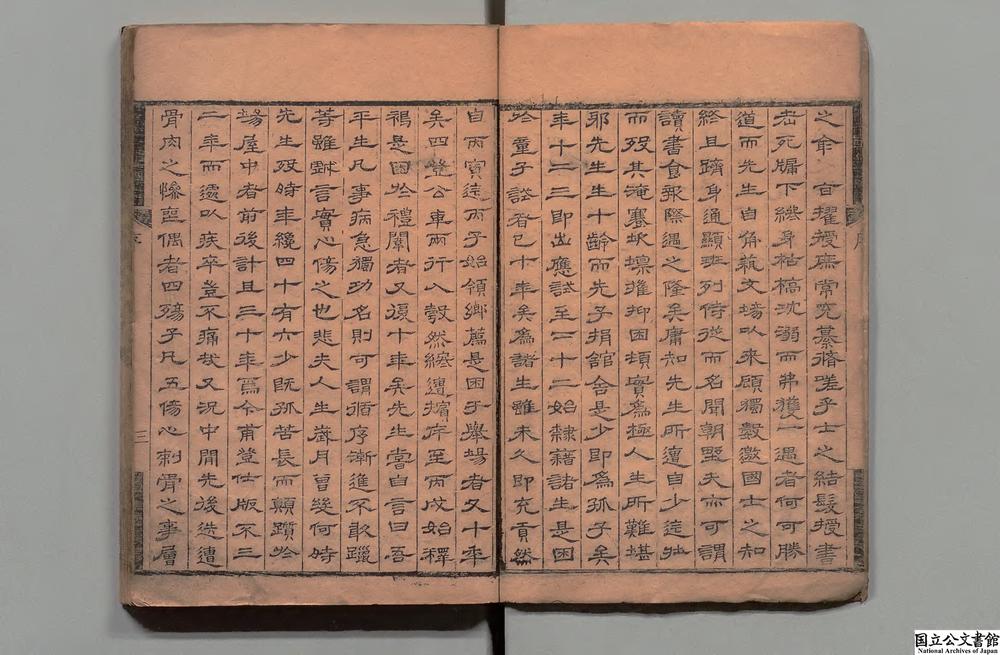 之命 首擢授庶常究纂脩嗟乎士之結髮授書
老死牖下纔身枯槁沈溺而弗獲一遇者何可勝
道而先生自角藝文場以來頋獨數邀國士之知
終且躋身通顯班列侍從而名聞朝野夫亦可謂
讀書食報際遇之隆矣庸知先生所遭自少迄壯
而歿其淹蹇坎壈摧抑困頓實為極人生所難堪
耶先生生十齡而先子捐館舍是少即為孤子矣
年十二三即出應試至二十二始隸藉諸生是困
於童子試者已十年矣為諸生雖未久即充貢然
自丙寅迄丙子始領鄉薦是困于舉場者又十年
矣四登公車兩行入彀然繼遭擯斥至丙戌始釋
褐是困於禮闈者又復十年矣先生嘗自言曰吾
平生凡事病急獨功名則可謂循序漸進不敢躐
等雖戲言實心傷之也悲夫人生歲月曾幾何時
先生歿時年纔四十有六少既孤苦長而顛躓於
場屋中者前後計且三十年焉今甫登仕版不三
二年而遽以疾卒豈不痛哉又況中閒先後迭遭
骨肉之慘喪偶者四殤子凡五傷心刺骨之事層
序
三
国立公文書館
National Archives of Japan